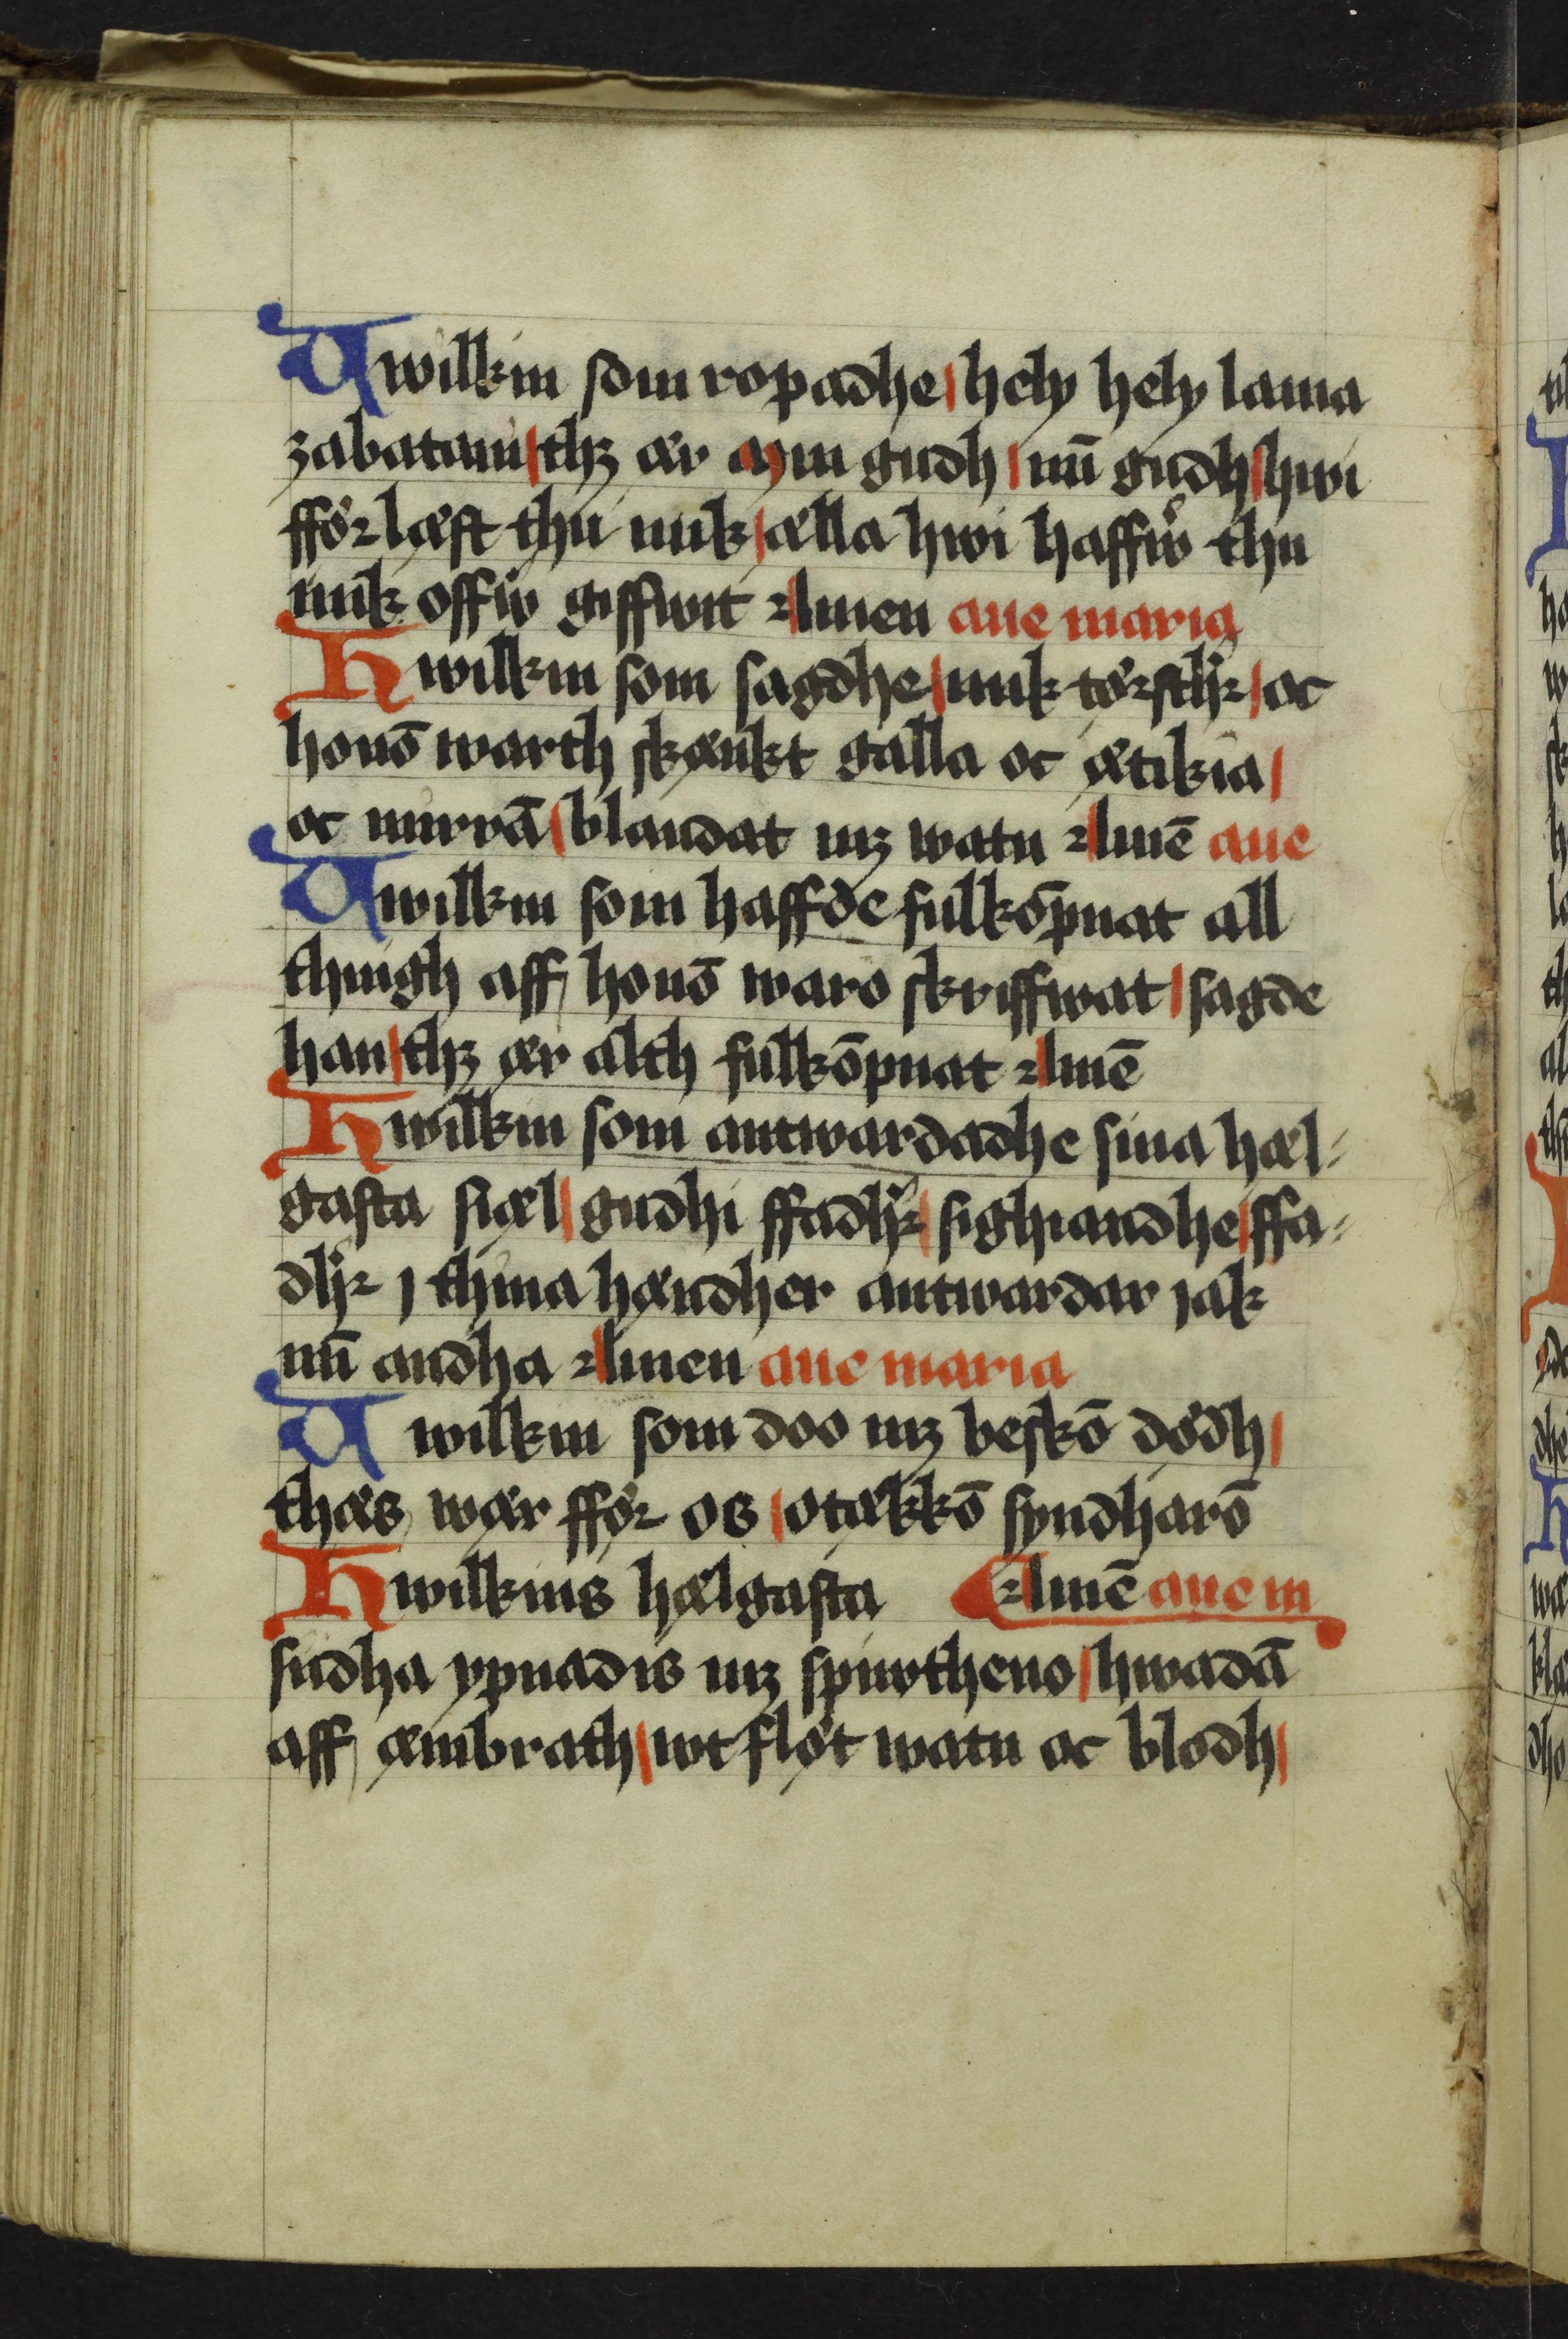 Hwilkin som ropadhe hely hely lama
zabatani thz ær min gudh min gudh hwi
fförlæst thu mik ælla hwi haffw͛ thu
mik offw͛ giffwit Amen aue maria
Hwilkin som sagdhe mik törsth͛ oc
honō warth skænkt galla oc ætikia
oc mirrā blandat mz watn Amē aue
Hwilkin som haffde fulkōpnat all
thingh aff honō waro skriffwat sagde
han thz ær alth fulkōpnat Amē
Hwilkin som antwardadhe sina hæl-
gasta siæl gudhi ffadh͛ sighiandhe ffa-
dh͛ j thina hændher antwardar jak
mī andha Amen aue maria
Hwilkin som doo mz beskō dödh
thæs wær ffør os otækkō syndharō
Hwilkins hælgasta Amē aue m
sidha ypnadis mz spiwtheno hwadā
aff æmbrath wt flöt watn oc blodh